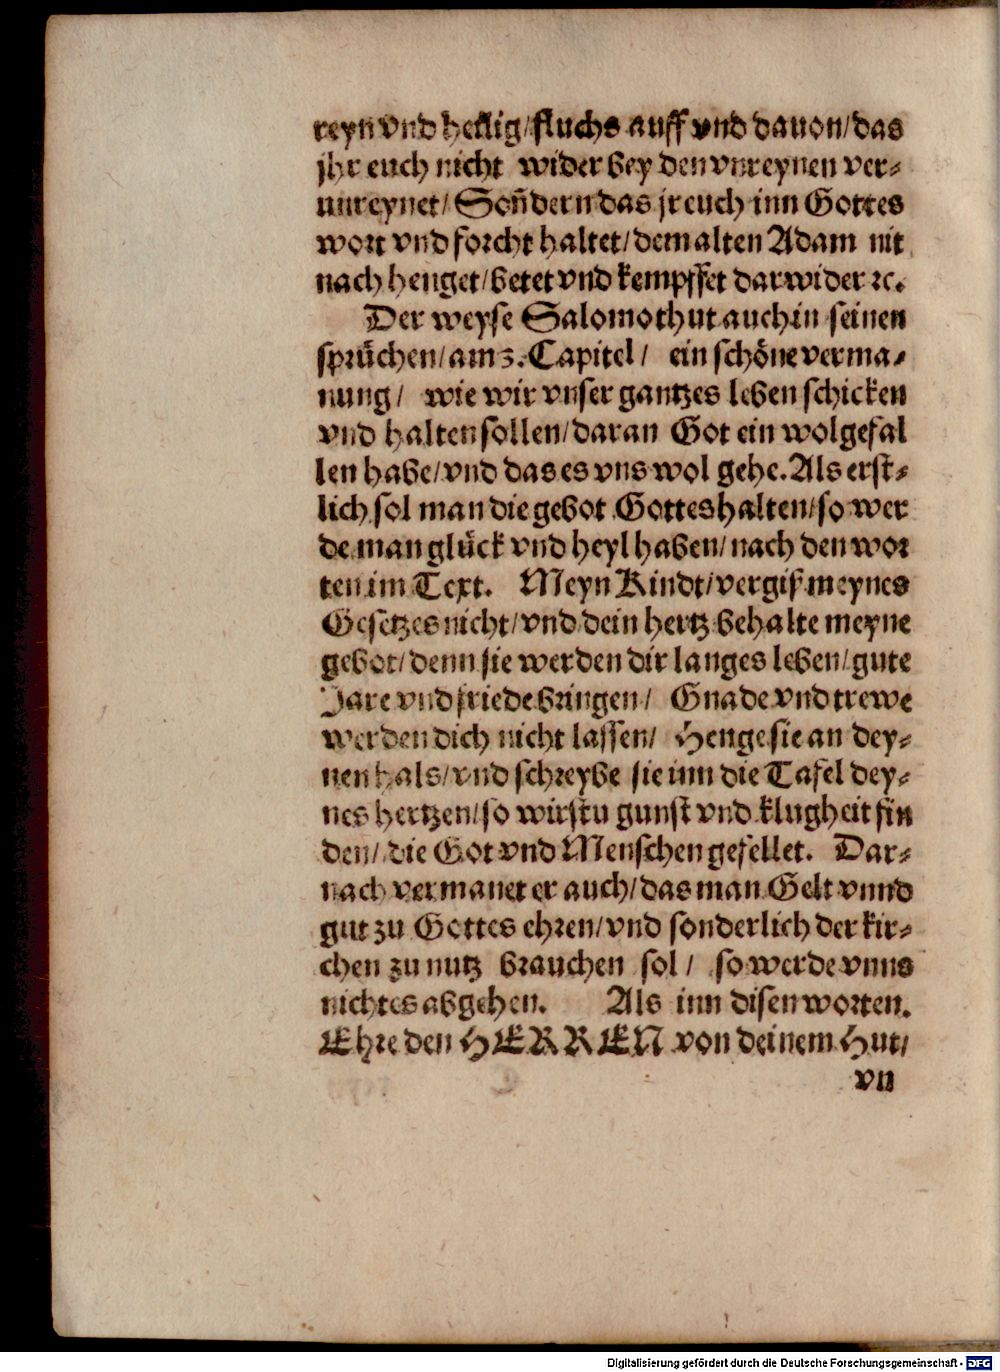 reyn vnd heilig/fluchs auff vnd dauon/das
jhr euch nicht wider bey den vnreynen ver-
unreynet/Soñdern das jr euch inn Gottes
wort vnd forcht haltet/dem alten Adam nit
nach henget/betet vnd kempffet darwider ꝛc.
Der weyse Salomo thut auch in seinen
sprüchen/am 3. Capitel/ ein schöne verma-
nung/ wie wir vnser gantzes leben schicken
vnd halten sollen/daran Got ein wolgefal
len habe/vnd das es vns wol gehe. Als erst-
lich sol man die gebot Gottes halten/so wer
de man glück vnd heyl haben/nach den wor
ten im Text. Meyn Kindt/vergiß meynes
Gesetzes nicht/vnd dein hertz behalte meyne
gebot/denn sie werden dir langes leben/gute
Jare vnd friede bringen/ Gnade vnd trewe
werden dich nicht lassen/ Henge sie an dey-
nen hals/vnd schreybe sie inn die Tafel dey-
nes hertzen/so wirstu gunst vnd klugheit fin
den/die Got vnd Menschen gefellet. Dar-
nach vermanet er auch/das man Gelt vnnd
gut zu Gottes ehren/vnd sonderlich der kir-
chen zu nutz brauchen sol/ so werde vnns
nichtes abgehen. Als inn disen worten.
Ehre den HERREN von deinem Hut/
vn
Digitalisierung gefördert durch die Deutsche Forschungsgemeinschaft - DFG